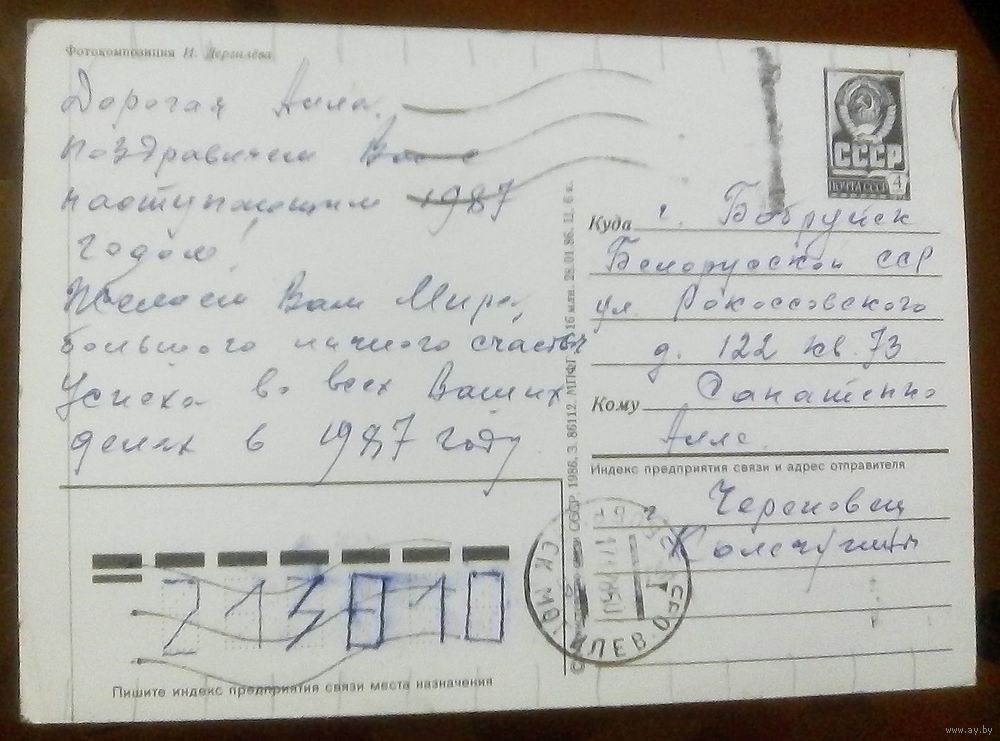 Фотокомпозиция И. Дергилёва
Дорогая Алла.
Поздравляем Вас с
наступающим 1987
годом!
Желаем Вам Мира,
большого личного счастья
Успеха во всех Ваших
делах в 1987 году
СССР
ПОЧТА СССР 4
Куда г. Бобруйск
Белорусской ССР
ул. Рокоссовского
д. 122 кв. 73
Кому
Алле.
Индекс предприятия связи и адрес отправителя
г. Череповец
СССР, 1986. З. 86112. МПФГ 16 млн. 28.01.86. Ц. 6 к.
213810
Пишите индекс предприятия связи места назначения
www.ay.by